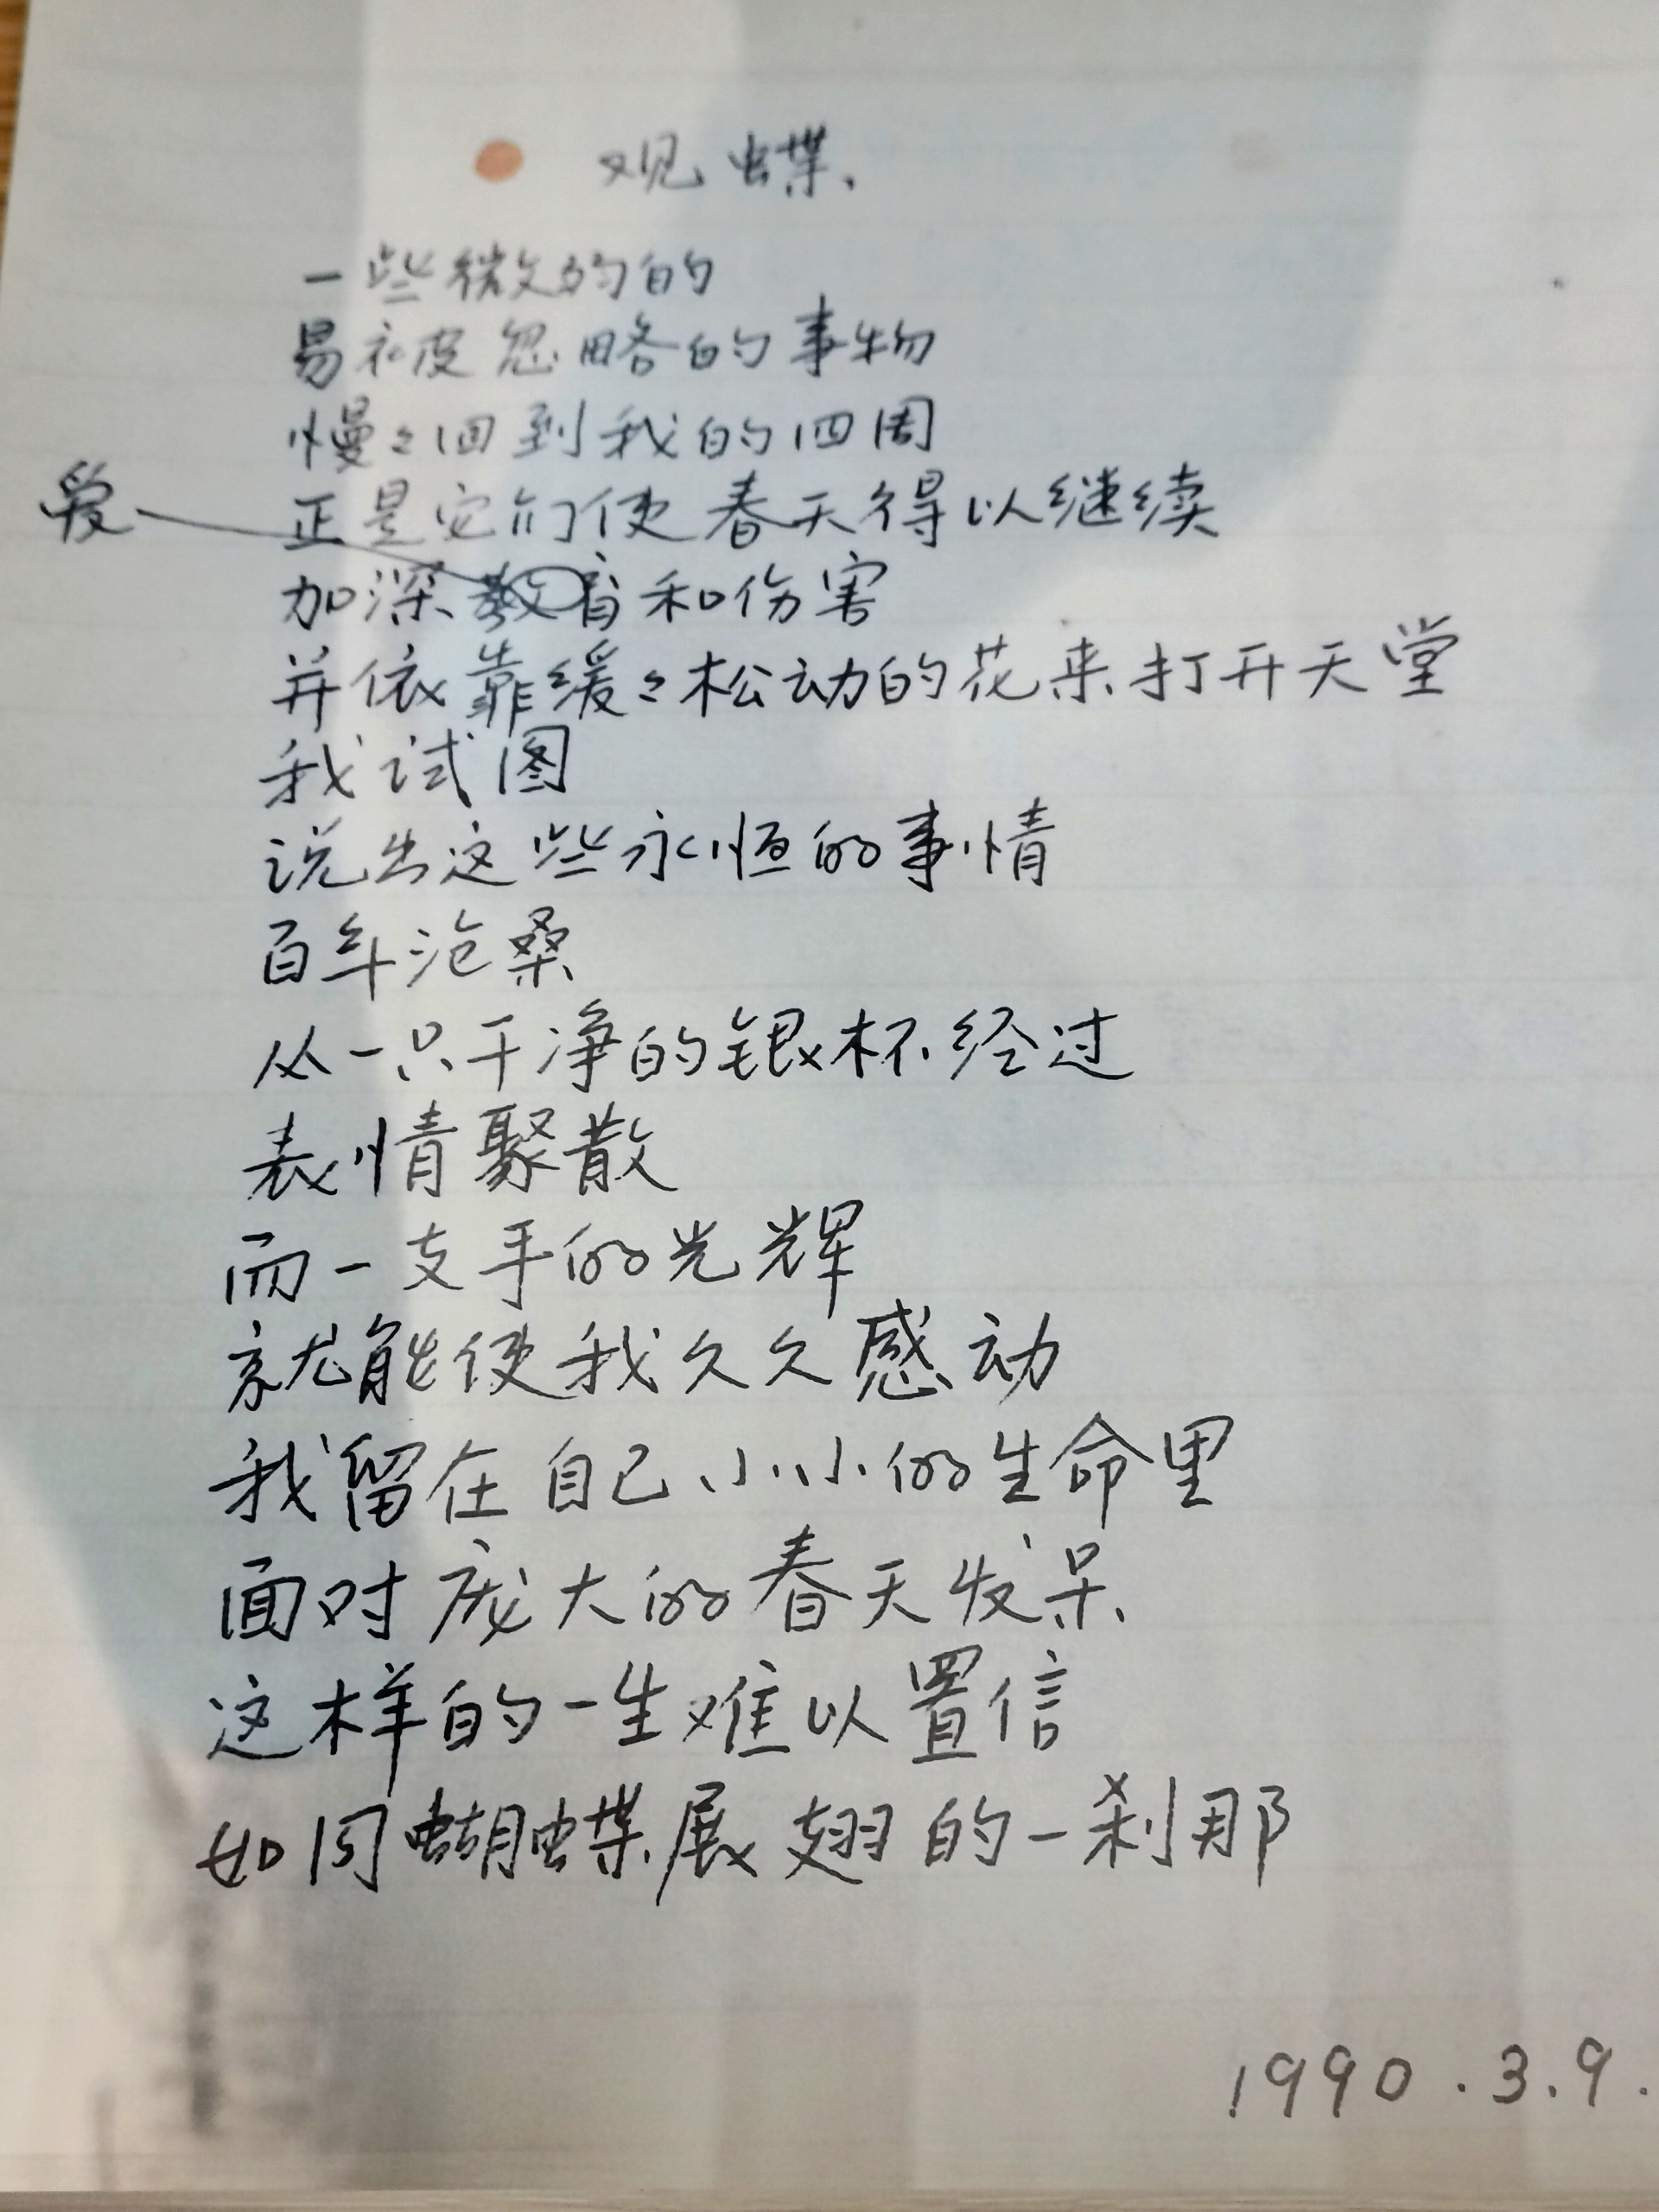 观蝶、
一些微弱的
易被忽略的事物
慢々回到我的四周
正是它们使春天得以继续
爱
加深教育和伤害
并依靠缓々松动的花来打开天堂
我试图
说出这些永恒的事情
百年沧桑
从一只干净的银杯经过
表情聚散
而一支手的光辉
就能使我久久感动
我留在自己小小的生命里
面对庞大的春天发呆
这样的一生难以置信
如同蝴蝶展翅的一刹那
1990.3.9.